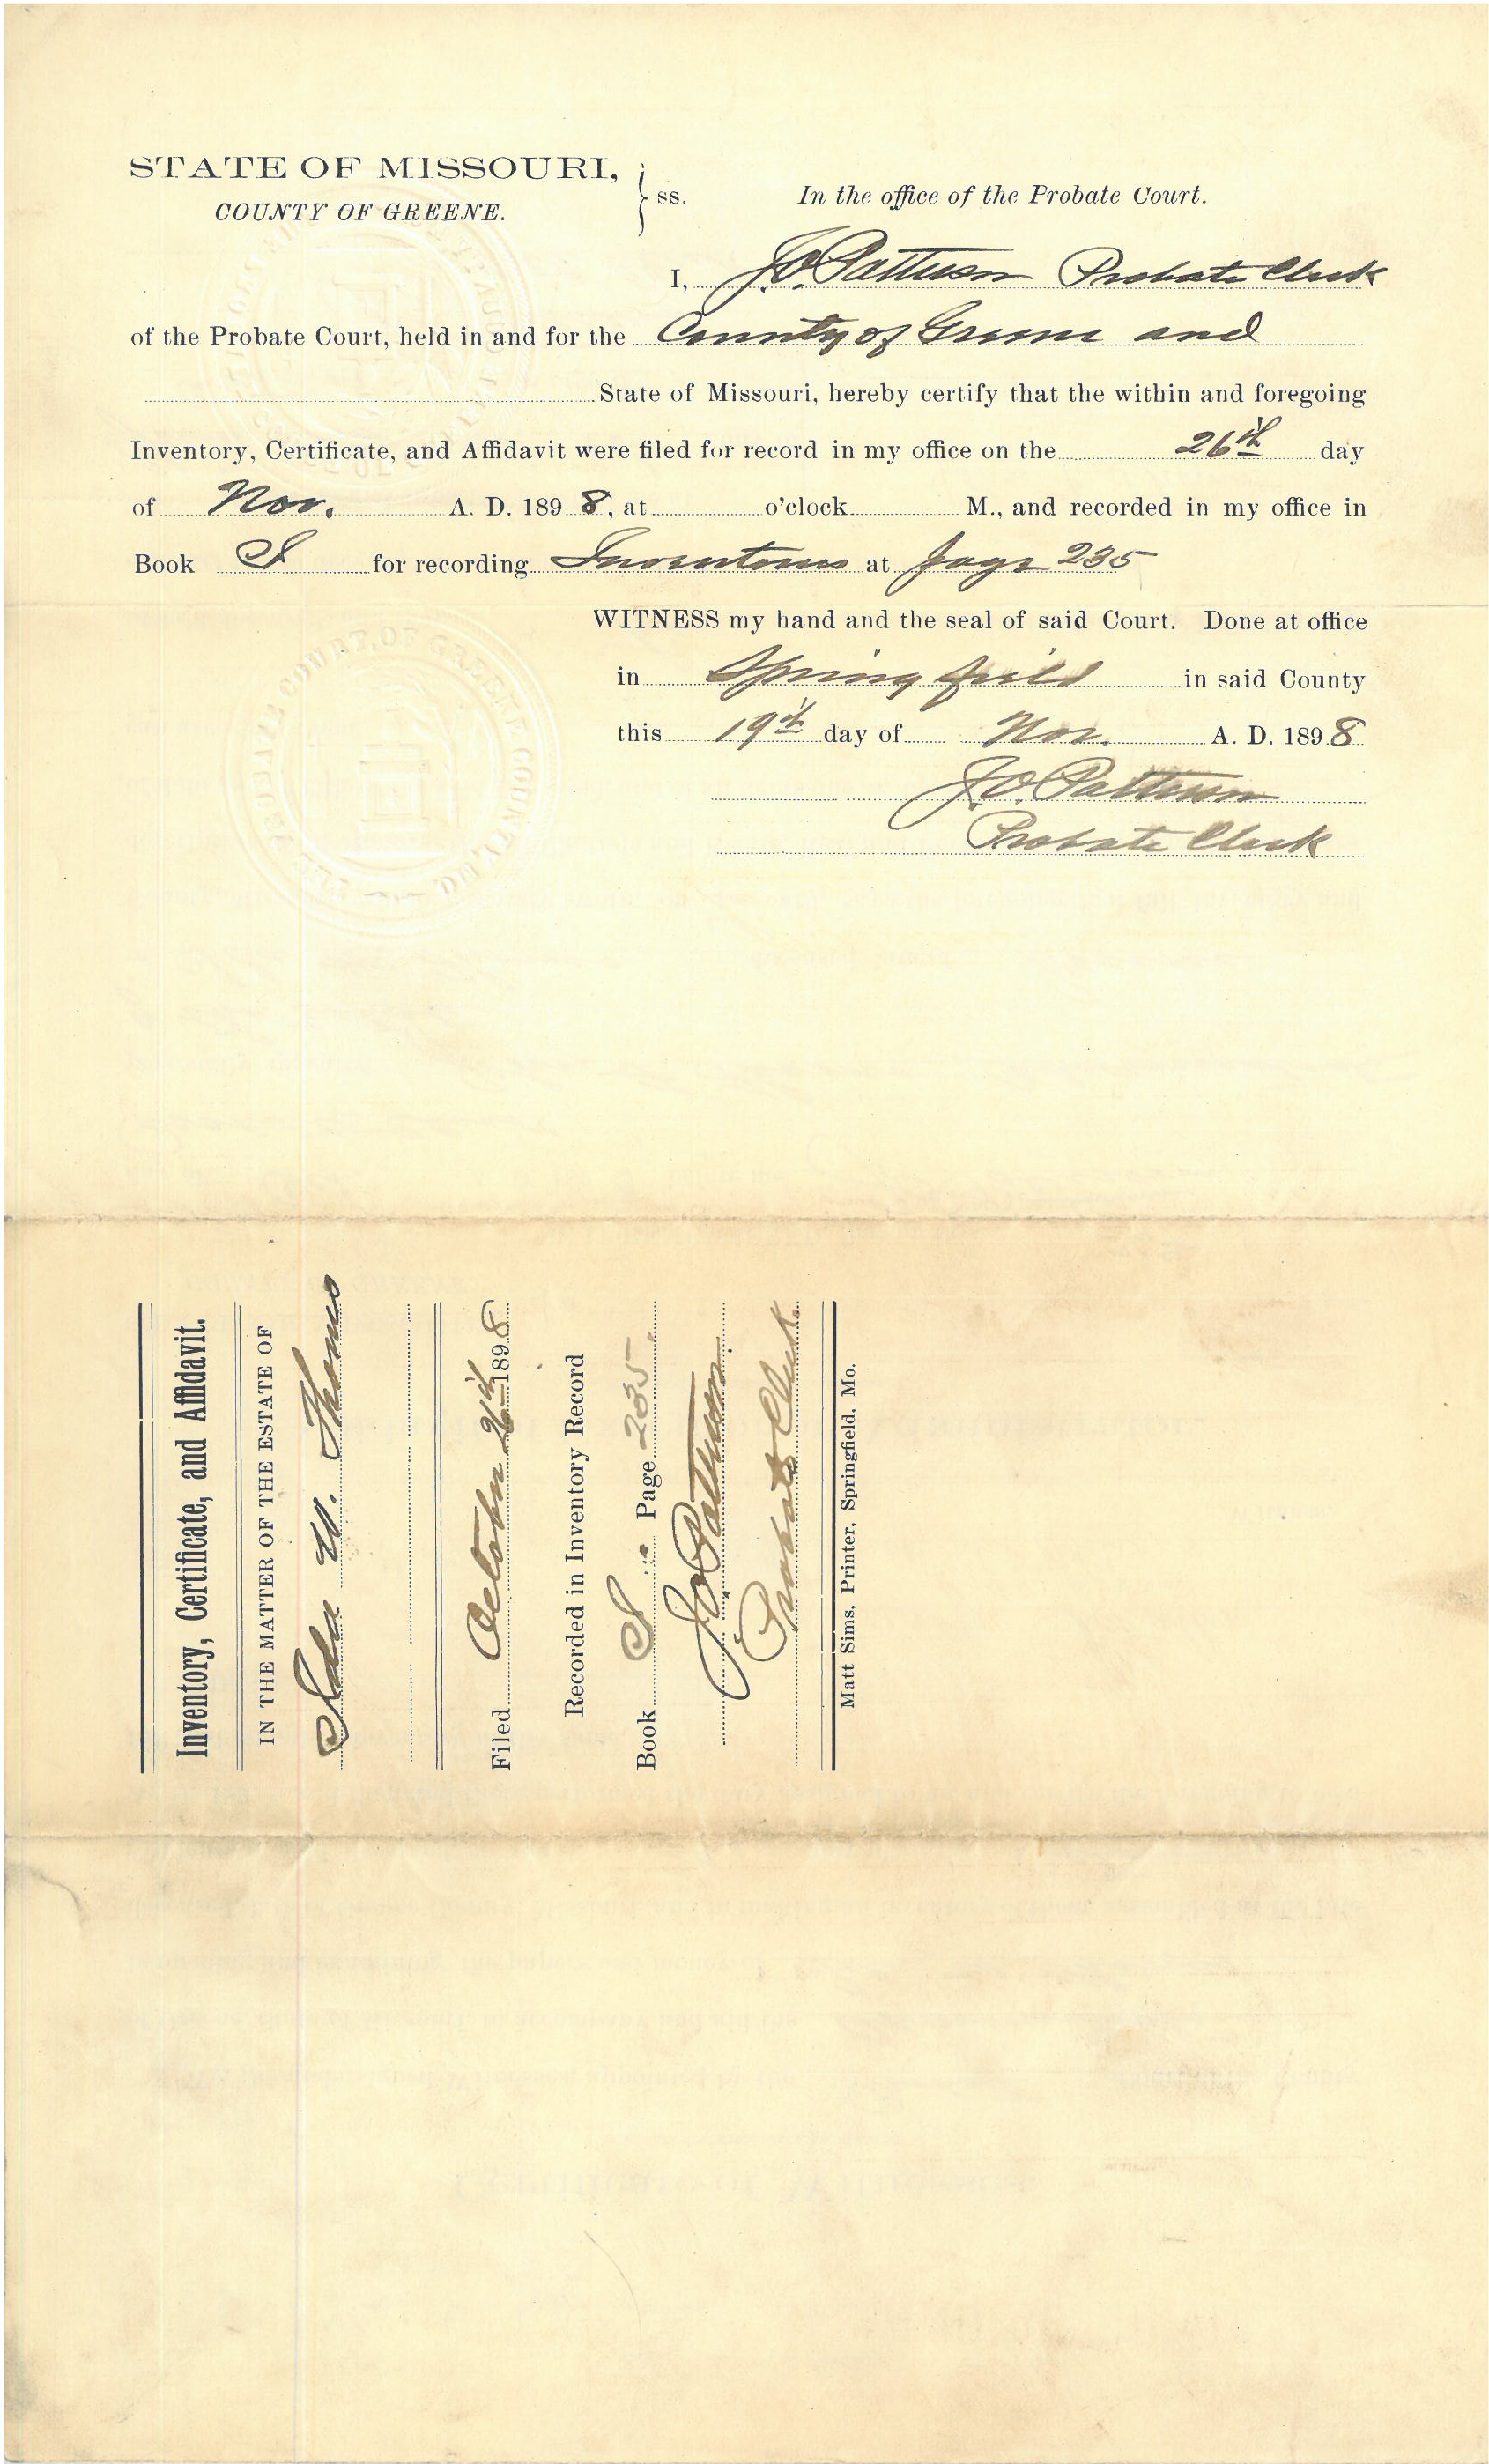 STATE OF MISSOURI,
COUNTY OF GREENE.
} ss.
In the office of the Probate Court.
I, J.O. Patterson Probate Clerk
of the Probate Court, held in and for the County of Greene and
State of Missouri, hereby certify that the within and foregoing
Inventory, Certificate, and Affidavit were filed for record in my office on the 26th day
of Nov. A. D. 1898, at o'clock M., and recorded in my office in
Book S for recording Inventories at page 235
WITNESS my hand and the seal of said Court. Done at office
in Springfield in said County
this 19th day of Nov. A. D. 1898
J.O. Patterson
Probate Clerk
PROBATE COURT, OF GREENE COUNTY, MO
Inventory, Certificate, and Affidavit.
IN THE MATTER OF THE ESTATE OF
W. Thomas
Filed October 26th 1898
Recorded in Inventory Record
Book S Page 235.
J.O. Patterson.
Probate Clerk.
Matt Sims, Printer, Springfield, Mo.